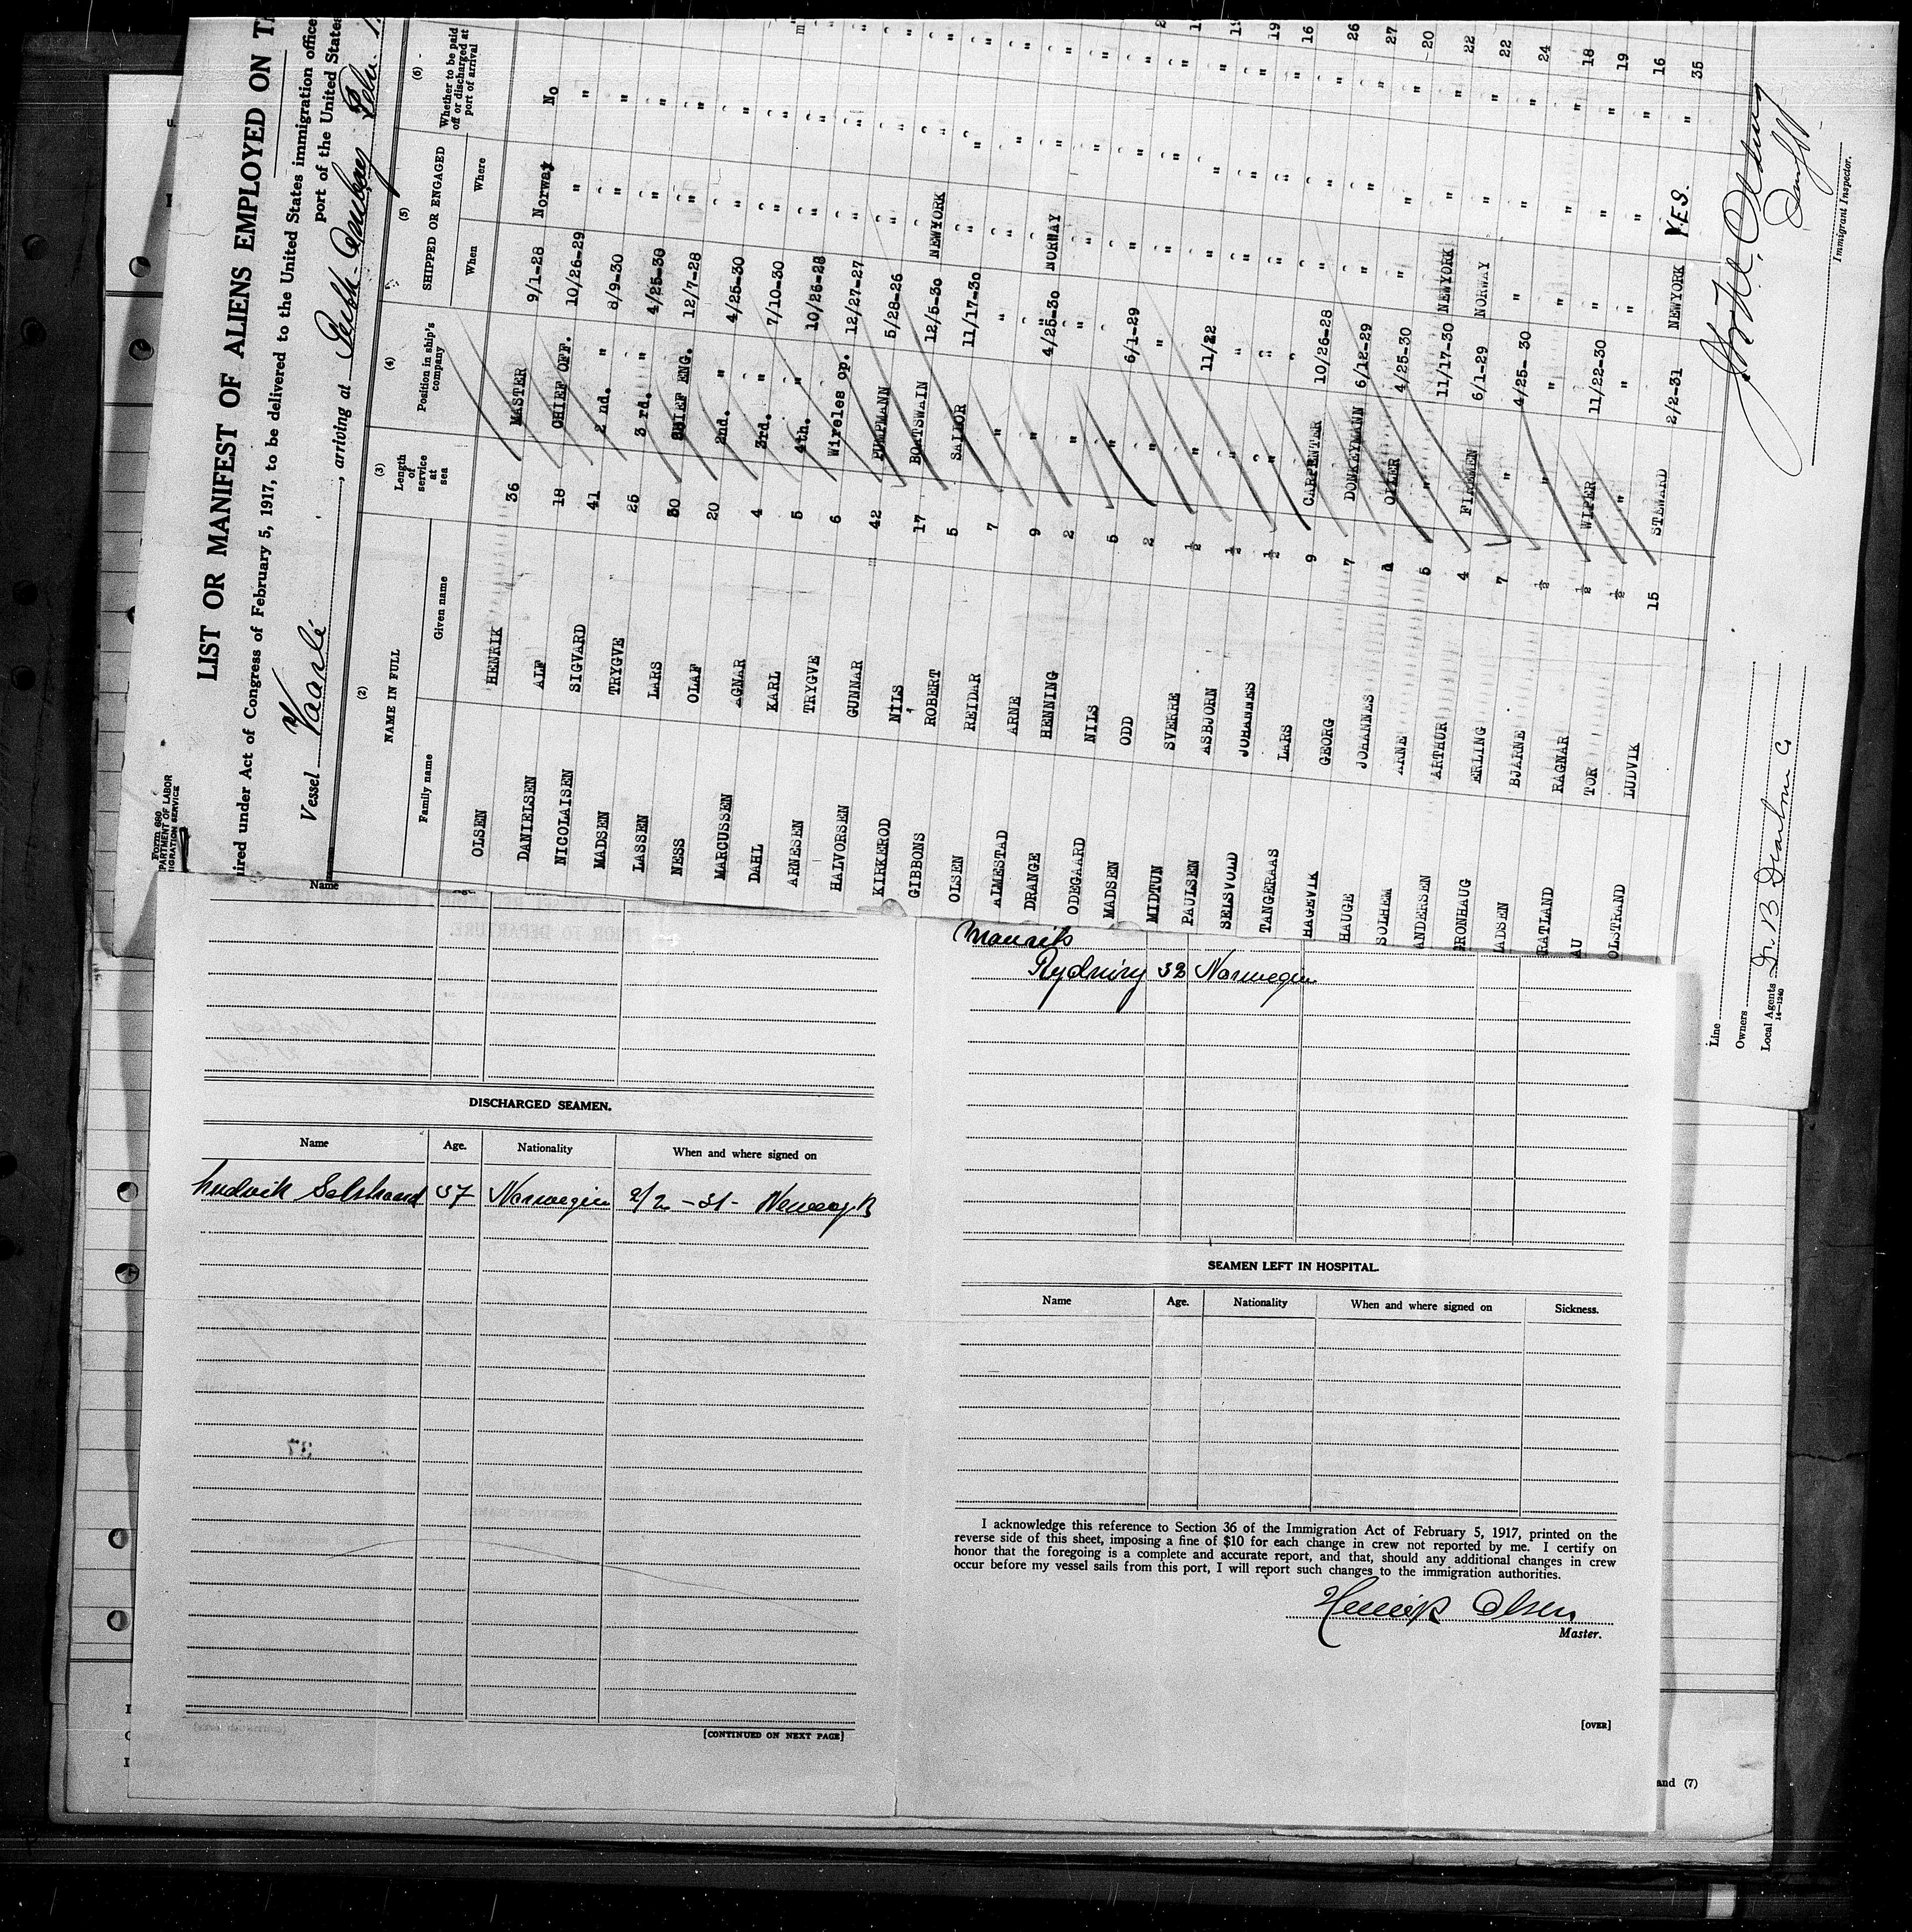 Form 680
LIST OR MANIFEST OF ALIENS EMPLOYED ON
under Act of Congress of February 5, 1917, to be delivered to the United States immigration
port of the United States
Vessel Vaarli, arriving at Perth Amboy
(2) (3) (4) (5) (6)
NAME IN FULL Length of service at sea Position in ship's company SHIPPED OR ENGAGED Whether to be paid off or discharged at port of arrival
Family name Given name When Where
OLSEN HENRIK 36 MASTER 9/1-28 Norway No
DANIELSEN ALF 18 CHIEF OFF. 10/26-29 " "
NICOLAISEN SIGVARD 41 2 nd. " 8/9-30 " "
MADSEN TRYGVE 3 rd. " 4/25-30 " "
LASSEN LARS 30 CHIEF ENG. 12/7-28 " "
NESS OLAF 20 2nd. " 4/25-30 " "
MARCUSSEN AGNAR 4 3rd. " 7/10-30 " "
DAHL KARL 5 4th. " 10/26-28 " "
ARNESEN TRYGVE 6 Wireles op. 12/27-27 " "
HALVORSEN GUNNAR 42 PUMPMANN 5/28-26 " "
KIRKEROD NILS 17 BOATSWAIN 12/5-30 NEWYORK "
GIBBONS ROBERT 5 SAILOR 11/17-30 " "
OLSEN REIDAR 7 " " " "
ALMESTAD ARNE 9 " 4/25-30 NORWAY "
DRANGE HENNING 2 " " " "
ODEGAARD NILS 5 " " "
MADSEN ODD 2 " 6/1-29 " "
MIDTUN SVERRE ½ " " " "
PAULSEN ASBJORN ½ " 11/22 " "
SELSVOLD JOHANNES ½ " " " "
TANGERAAS LARS 9 CARPENTER " " "
HAGEVIK GEORG 7 DONKEYMANN 10/26-28 " "
HAUGE JOHANNES OILER 6/12-29 " "
SOLHEM ARNE 5 " 4/25-30 " "
ANDERSEN ARTHUR 4 FIREMEN 11/17-30 NEWYORK "
GRONHAUG ERLING 7 " 6/1-29 NORWAY "
BJARNE ½ " 4/25-30 " "
RAGNAR ½ WIPER " " "
TOR ½ " 11/22-30 " "
LUDVIK 15 STEWARD " "
2/2-31 NEWYORK YES.
Immigrant Inspector.
Line
Owners
Local Agents
14-1240
Name
DISCHARGED SEAMEN.
Name Age. Nationality When and where signed on
Ludvik Solstrand 37 Norwegin 2/2 -31- Newyork
[CONTINUED ON NEXT PAGE]
32 Norwegin
SEAMEN LEFT IN HOSPITAL.
Name Age. Nationality When and where signed on Sickness.
I acknowledge this reference to Section 36 of the Immigration Act of February 5, 1917, printed on the
reverse side of this sheet, imposing a fine of $10 for each change in crew not reported by me. I certify on
honor that the foregoing is a complete and accurate report, and that, should any additional changes in crew
occur before my vessel sails from this port, I will report such changes to the immigration authorities.
Henrik Olsen
Master.
[OVER]
and (7)